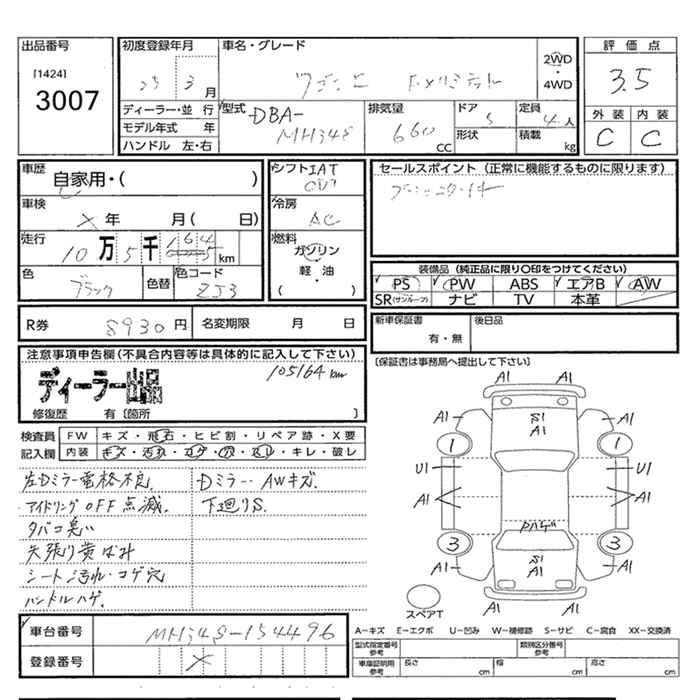 出品番号
[1424]
3007
初度登録年月
25 3 月
ディーラー・並 行
モデル年式 年
ハンドル 左・右
車名・グレード
ワゴンR FXリミテッド
2WD
・
4WD
型式 DBA-
MH34S
排気量
660 CC
ドア 5
形状
定員 4 人
積載 kg
評 価 点
3.5
外 装 内 装
C C
車歴
自家用・( )
車検
× 年 月( 日)
走行
10 万 5 千 164 km
色
ブラック
色替
色コード
ZJ3
シフト IAT
冷房
AC
燃料
ガソリン
・
軽・油
( )
セールスポイント (正常に機能するものに限ります)
プッシュスタート
装備品 (純正品に限り〇印をつけてください)
PS PW ABS エアB AW
SR(サンルーフ) ナビ TV 本革
R券 8930 円
名変期限 月 日
新車保証書
有・無
後日品
[保証書は事務局へ提出して下さい]
注意事項申告欄(不具合内容等は具体的に記入して下さい)
ディーラー出品
105164 km
修復歴 有 [箇所 ]
検査員
記入欄
FW キズ・飛石・ヒビ割・リペア跡・X要
内装 キズ・汚れ・コゲ・穴・スレ・キレ・破レ
左Dミラー電格不良.
アイドリングOFF点滅.
タバコ臭い
天張り黄ばみ
シート汚れ・コゲ穴
ハンドルハゲ.
Dミラー. AWキズ.
下廻りS.
A1 A1
A1 S1 A1
A1
1 1
U1 U1
A1 A1
3 3
S1
A1 A1 A1
A1
スペアT
A-キズ E-エクボ U-凹み W-補修跡 S-サビ C-腐食 XX-交換済
車台番号
MH34S-154496
登録番号
×
型式指定番号
参考
類別区分番号
参考
車庫証明用
参考
長さ cm
幅 cm
高さ cm